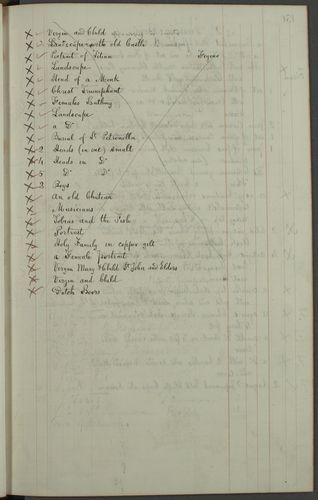 Virgin and Child
Landscape with old Castle
Portrait of Titian
Landscape
Head of a Monk
Christ Triumphant
Females Bathing
Landscape
a Do
Burial of St Petronilla
2 Heads (in one) small
4 Heads in Do
5 Do Do
2 Boys
An old Chateau
Musicians
Tobias and the Fish
Portrait
Holy Family in copper gilt
a Female portrait
Virgin Mary & Child St John and Elders
Virgin and Child
Dutch Boors